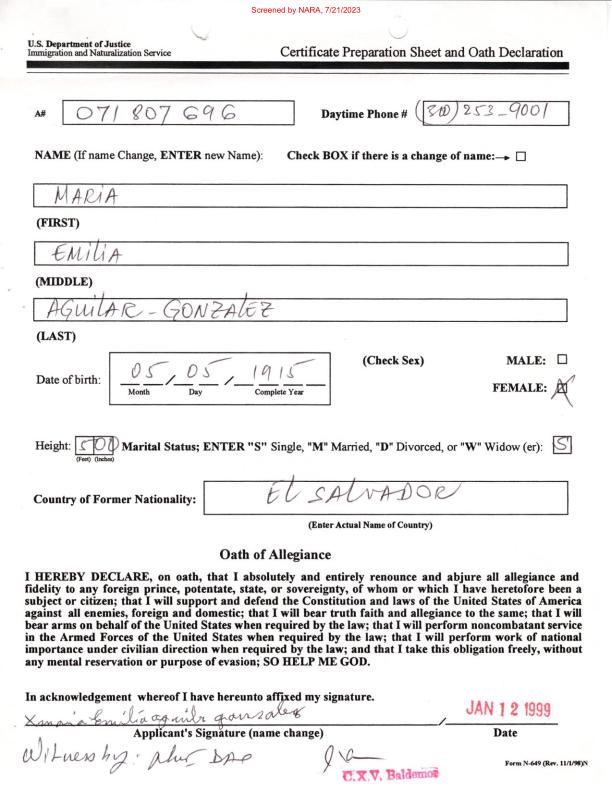 Screened by NARA, 7/21/2023
U.S. Department of Justice
Immigration and Naturalization Service
Certificate Preparation Sheet and Oath Declaration
A# 071 807 696 Daytime Phone # (310) 253-9001
NAME (If name Change, ENTER new Name): Check BOX if there is a change of name:→ ☐
MARIA
(FIRST)
EMILIA
(MIDDLE)
AGUILAR - GONZALEZ
(LAST)
(Check Sex) MALE: ☐
Date of birth: 05 / 05 / 1915
FEMALE: ☒
Month Day Complete Year
Height: 5 00 Marital Status; ENTER "S" Single, "M" Married, "D" Divorced, or "W" Widow (er): S
(Feet) (Inches)
Country of Former Nationality: EL SALVADOR
(Enter Actual Name of Country)
Oath of Allegiance
I HEREBY DECLARE, on oath, that I absolutely and entirely renounce and abjure all allegiance and
fidelity to any foreign prince, potentate, state, or sovereignty, of whom or which I have heretofore been a
subject or citizen; that I will support and defend the Constitution and laws of the United States of America
against all enemies, foreign and domestic; that I will bear truth faith and allegiance to the same; that I will
bear arms on behalf of the United States when required by the law; that I will perform noncombatant service
in the Armed Forces of the United States when required by the law; that I will perform work of national
importance under civilian direction when required by the law; and that I take this obligation freely, without
any mental reservation or purpose of evasion; SO HELP ME GOD.
In acknowledgement whereof I have hereunto affixed my signature.
X maria Emilia aguilr gonsales / JAN 12 1999
Applicant's Signature (name change) Date
Witness by: DAO
C.X.V. Baldemor
Form N-649 (Rev. 11/1/98)N